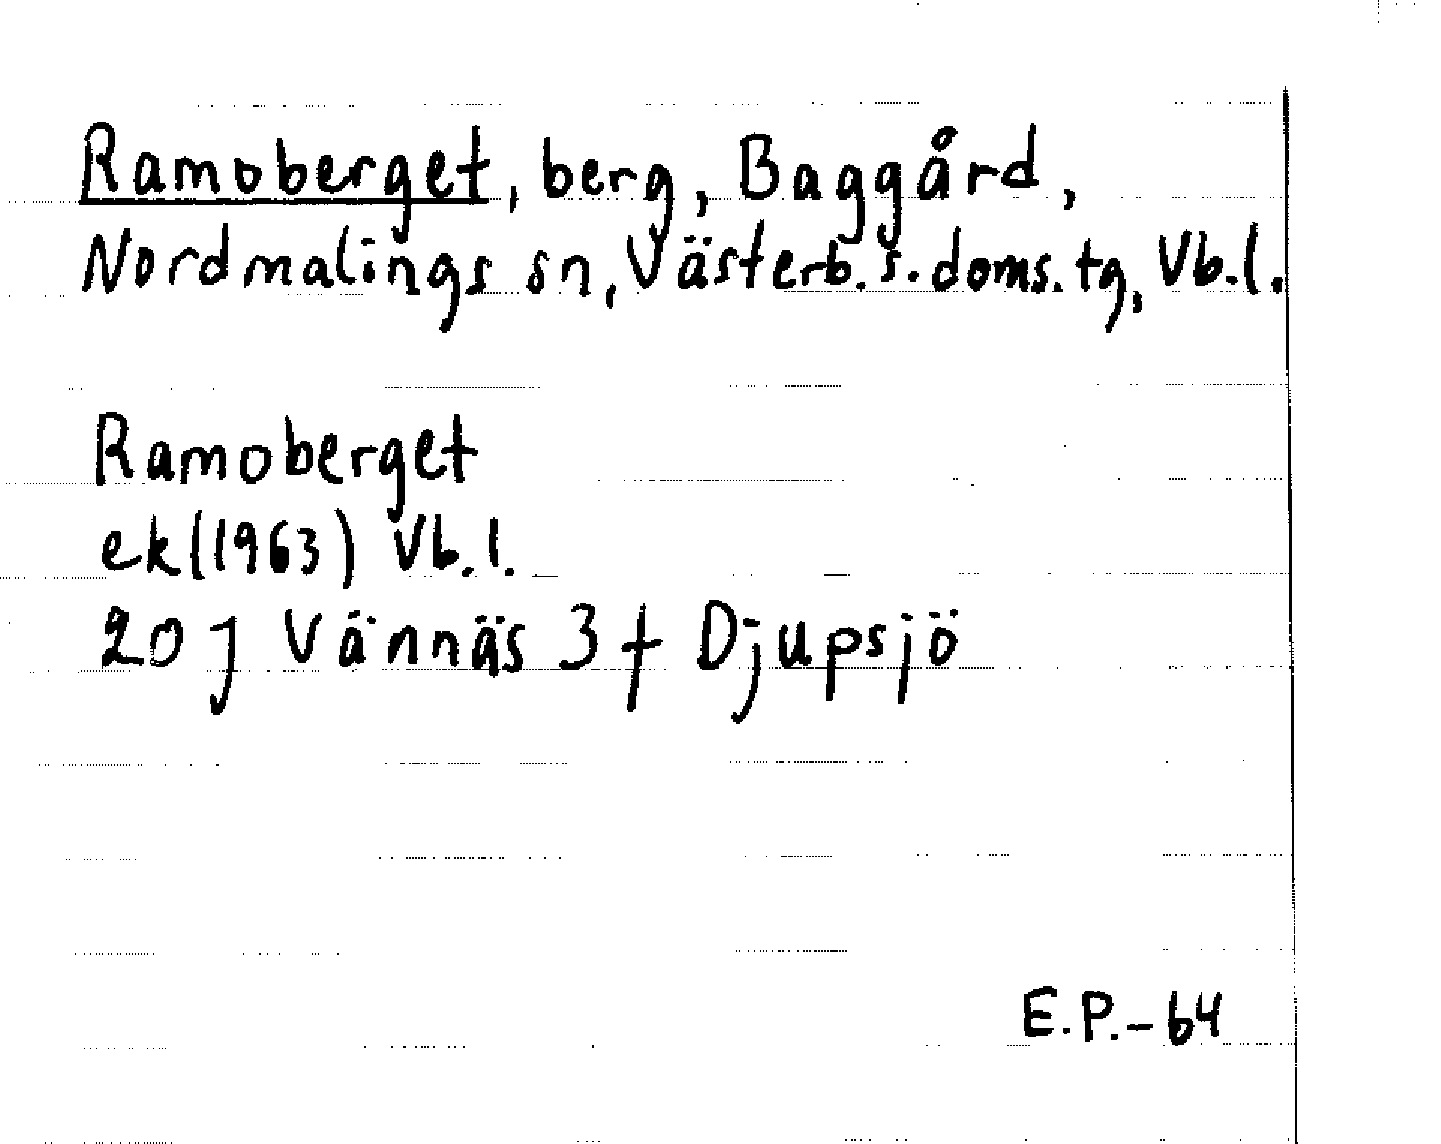 Ramoberget, berg, Baggård,
Nordmalings sn, Västerb. s. doms. tg, Vb. l.
Ramoberget
ek (1963) Vb. l.
20 J Vännäs 3 f Djupsjö
E.P.-64